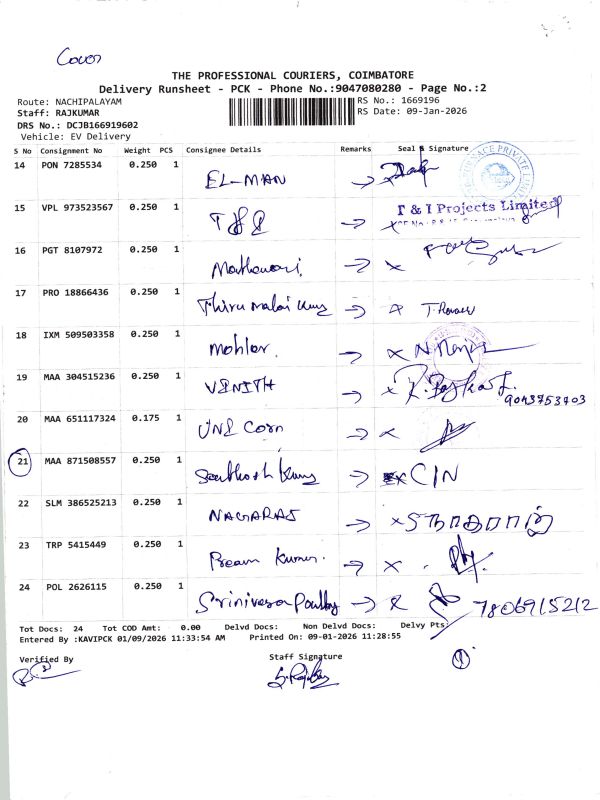 Cover
THE PROFESSIONAL COURIERS, COIMBATORE
Delivery Runsheet - PCK - Phone No.:9047080280 - Page No.:2
Route: NACHIPALAYAM
RS No.: 1669196
Staff: RAJKUMAR
RS Date: 09-Jan-2026
DRS No.: DCJB166919602
Vehicle: EV Delivery
S No Consignment No Weight PCS Consignee Details Remarks Seal & Signature
14 PON 7285534 0.250 1 EL-MAN
15 VPL 973523567 0.250 1 T & I Projects Limited
16 PGT 8107972 0.250 1
17 PRO 18866436 0.250 1 Thirumalai
18 IXM 509503358 0.250 1
19 MAA 304515236 0.250 1 VENITH 9043753703
20 MAA 651117324 0.175 1 UNI Corn
21 MAA 871508557 0.250 1 Santhosh Kumar CIN
22 SLM 386525213 0.250 1 NAGARAJ
23 TRP 5415449 0.250 1 Prem Kumar.
24 POL 2626115 0.250 1 Srinivasa Poultry 7806915212
Tot Docs: 24 Tot COD Amt: 0.00 Delvd Docs: Non Delvd Docs: Delvy Pts:
Entered By :KAVIPCK 01/09/2026 11:33:54 AM Printed On: 09-01-2026 11:28:55
Verified By
Staff Signature